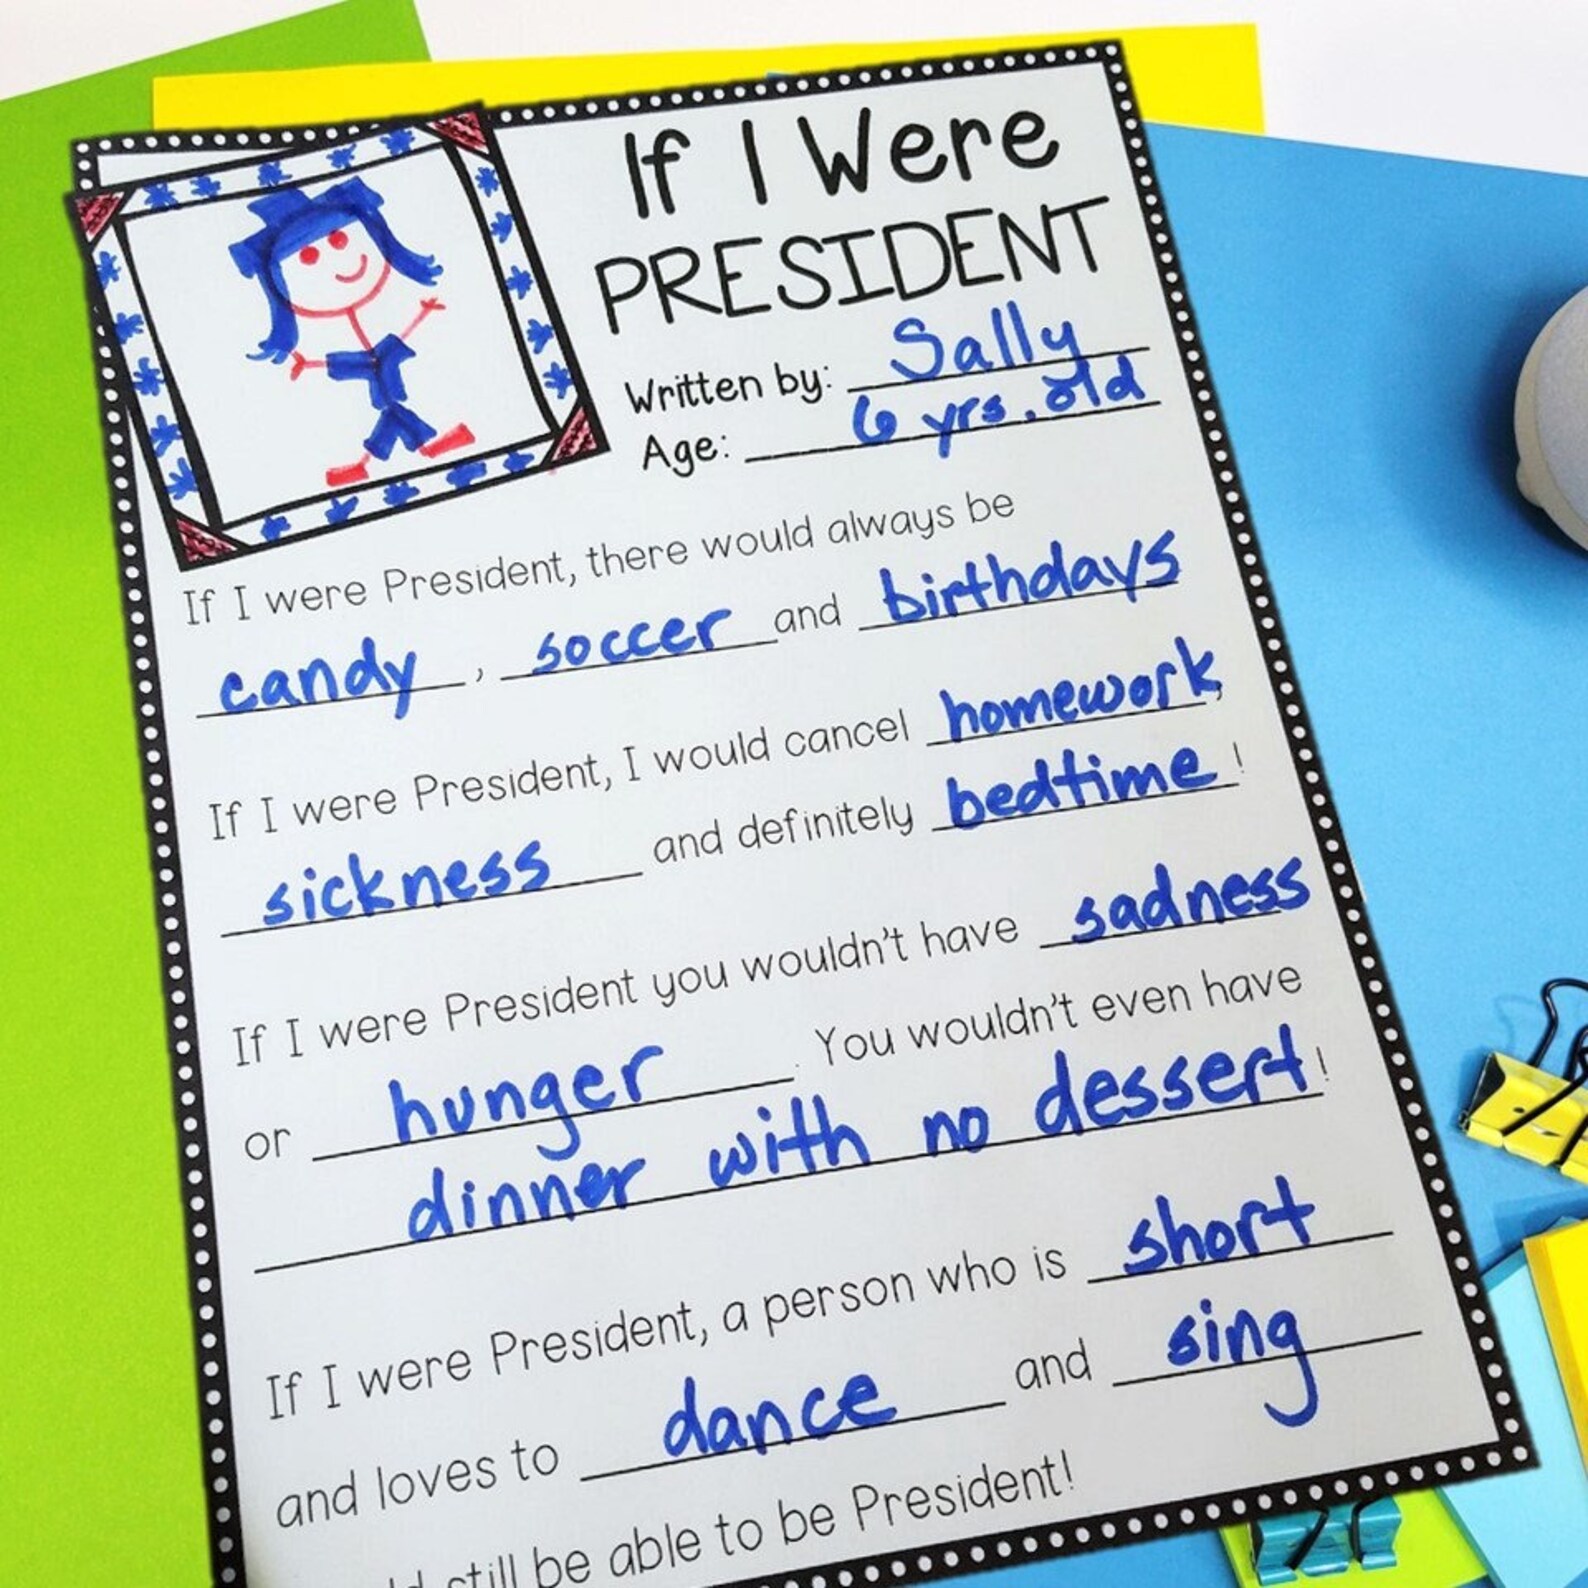 If I Were
PRESIDENT
Written by: Sally
Age: 6 yrs. old
If I were President, there would always be
candy, soccer and birthdays
If I were President, I would cancel homework,
sickness and definitely bedtime!
If I were President you wouldn't have sadness
or hunger. You wouldn't even have
dinner with no dessert!
If I were President, a person who is short
and loves to dance and sing
still be able to be President!